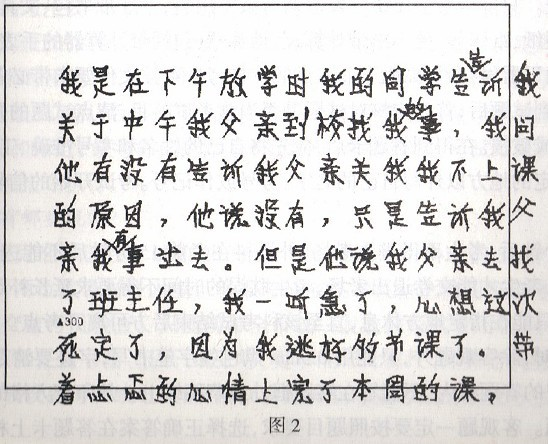 我是在下午放学时我的同学告诉我
关于中午我父亲到校找我事，我问
他有没有告诉我父亲关我我不上课
的原因，他说没有，只是告诉我父
亲我有事出去。但是他说我父亲去找
了班主任，我一听急了，心想这次
▲300
死定了，因为我逃好的节课了。带
着忐忑的心情，完了本周的课，
图2